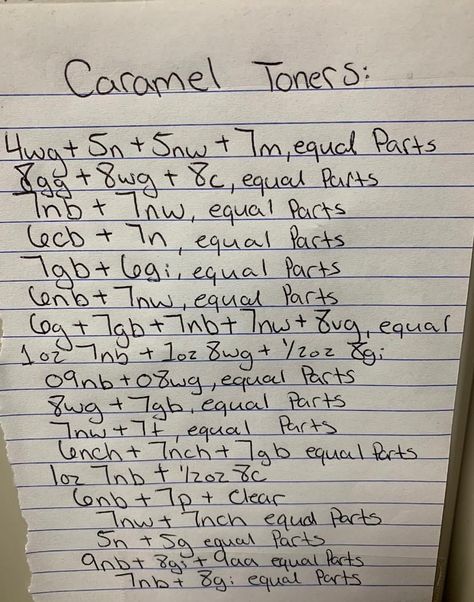 Caramel Toners:
4wg + 5n + 5nw + 7m, equal Parts
8gg + 8wg + 8c, equal Parts
7nb + 7nw, equal Parts
6cb + 7n, equal Parts
7gb + 6gi, equal Parts
6nb + 7nw, equal Parts
6g + 7gb + 7nb + 7nw + 8vg, equal
1oz 7nb + 1oz 8wg + 1/2oz 8gi
09nb + 08wg, equal Parts
8wg + 7gb, equal Parts
7nw + 7t, equal Parts
6nch + 7nch + 7gb equal Parts
1oz 7nb + 1/2oz 8c
6nb + 7p + Clear
7nw + 7nch equal Parts
5n + 5g equal Parts
9nb + 8gi + 9aa equal Parts
7nb + 8gi equal Parts